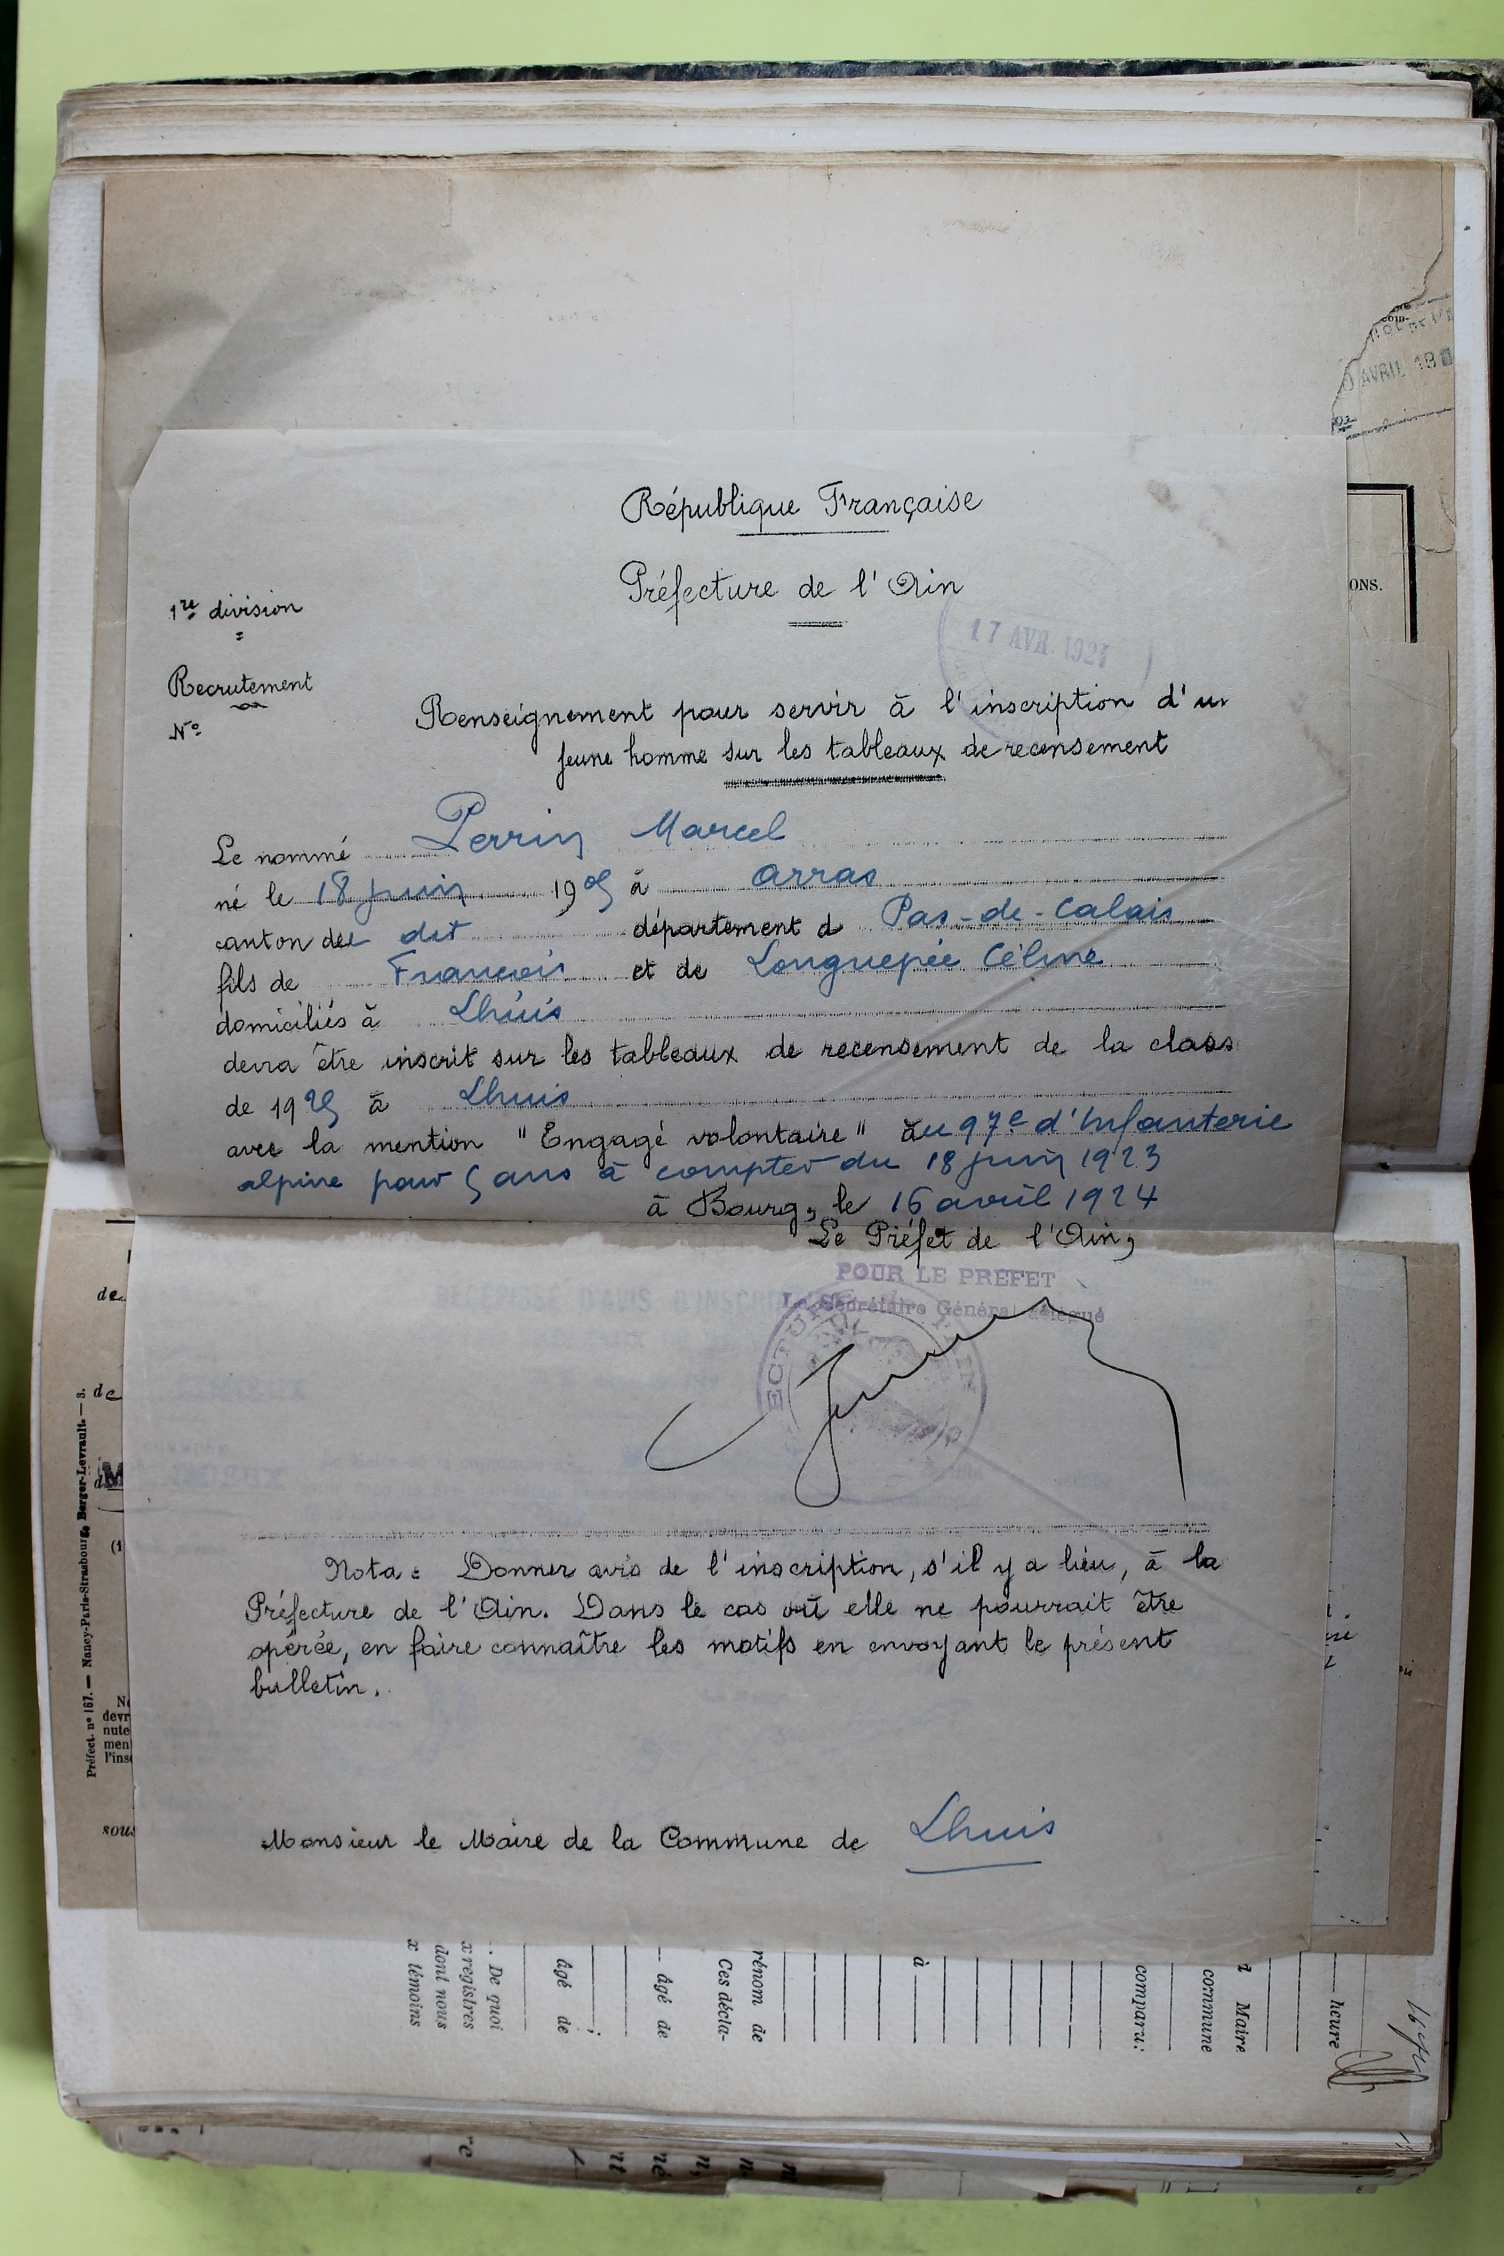 République Française
Préfecture de l'Ain
1re division
17 AVR. 1924
Recrutement
No
Renseignement pour servir à l'inscription d'un
jeune homme sur les tableaux de recensement
Le nommé Perrin Marcel
né le 18 juin 1905 à Arras
canton de dit département d Pas-de-Calais
fils de François et de Longuepée Céline
domiciliés à Lhuis
devra être inscrit sur les tableaux de recensement de la class
de 1925 à Lhuis
avec la mention "Engagé volontaire" au 97e d'Infanterie
alpine pour 5 ans à compter du 18 juin 1923
à Bourg, le 16 avril 1924
Le Préfet de l'Ain,
POUR LE PREFET
Le Secrétaire Général délégué
Nota: Donner avis de l'inscription, s'il y a lieu, à la
Préfecture de l'Ain. Dans le cas où elle ne pourrait être
opérée, en faire connaître les motifs en envoyant le présent
bulletin.
Monsieur le Maire de la Commune de Lhuis
AVRIL
ONS.
de
de
Préfect. no 167. — Nancy-Paris-Strasbourg, Berger-Levrault. — 3.
devr
nute
men
l'ins
sous
heure
Maire
commune
comparu:
à
rénom de
Ces décla-
âgé de
âgé de
De quoi
x registres
dont nous
x témoins